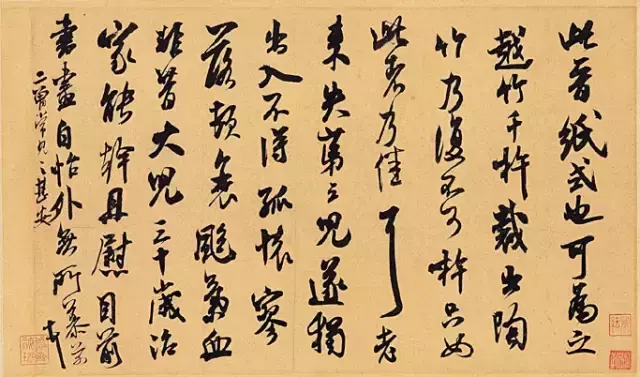 此晉紙式也可為之
越竹千杵裁出陶
竹乃復不可杵只如
此者乃佳耳老
來失第三兒遂獨
出入不得孤懷寥
落頓衰颶氣血
非昔大兒三十歲治
家能幹且慰目前
書畫自怡外無所慕芾
二甥常見之甚安